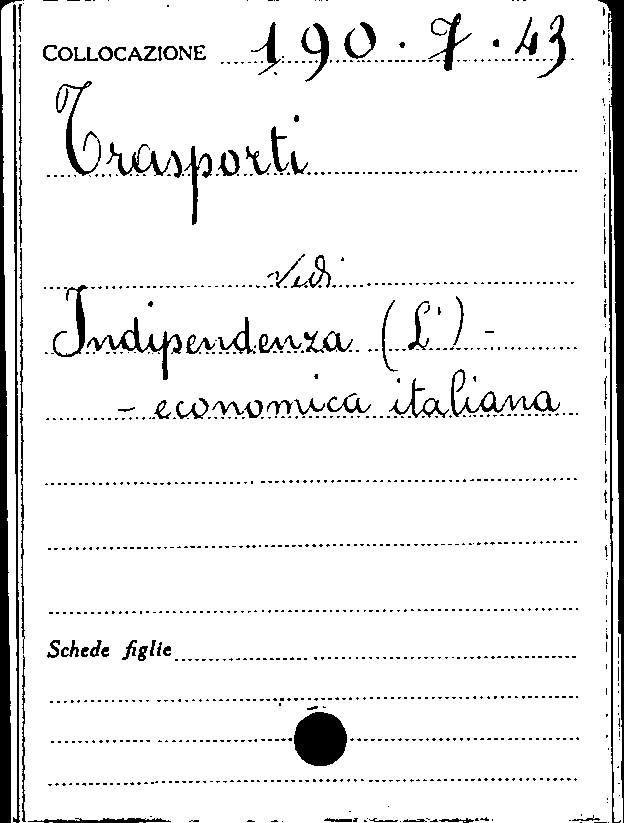 COLLOCAZIONE 190.7.43
Trasporti
vedi
Indipendenza (L') -
- economica italiana
Schede figlie